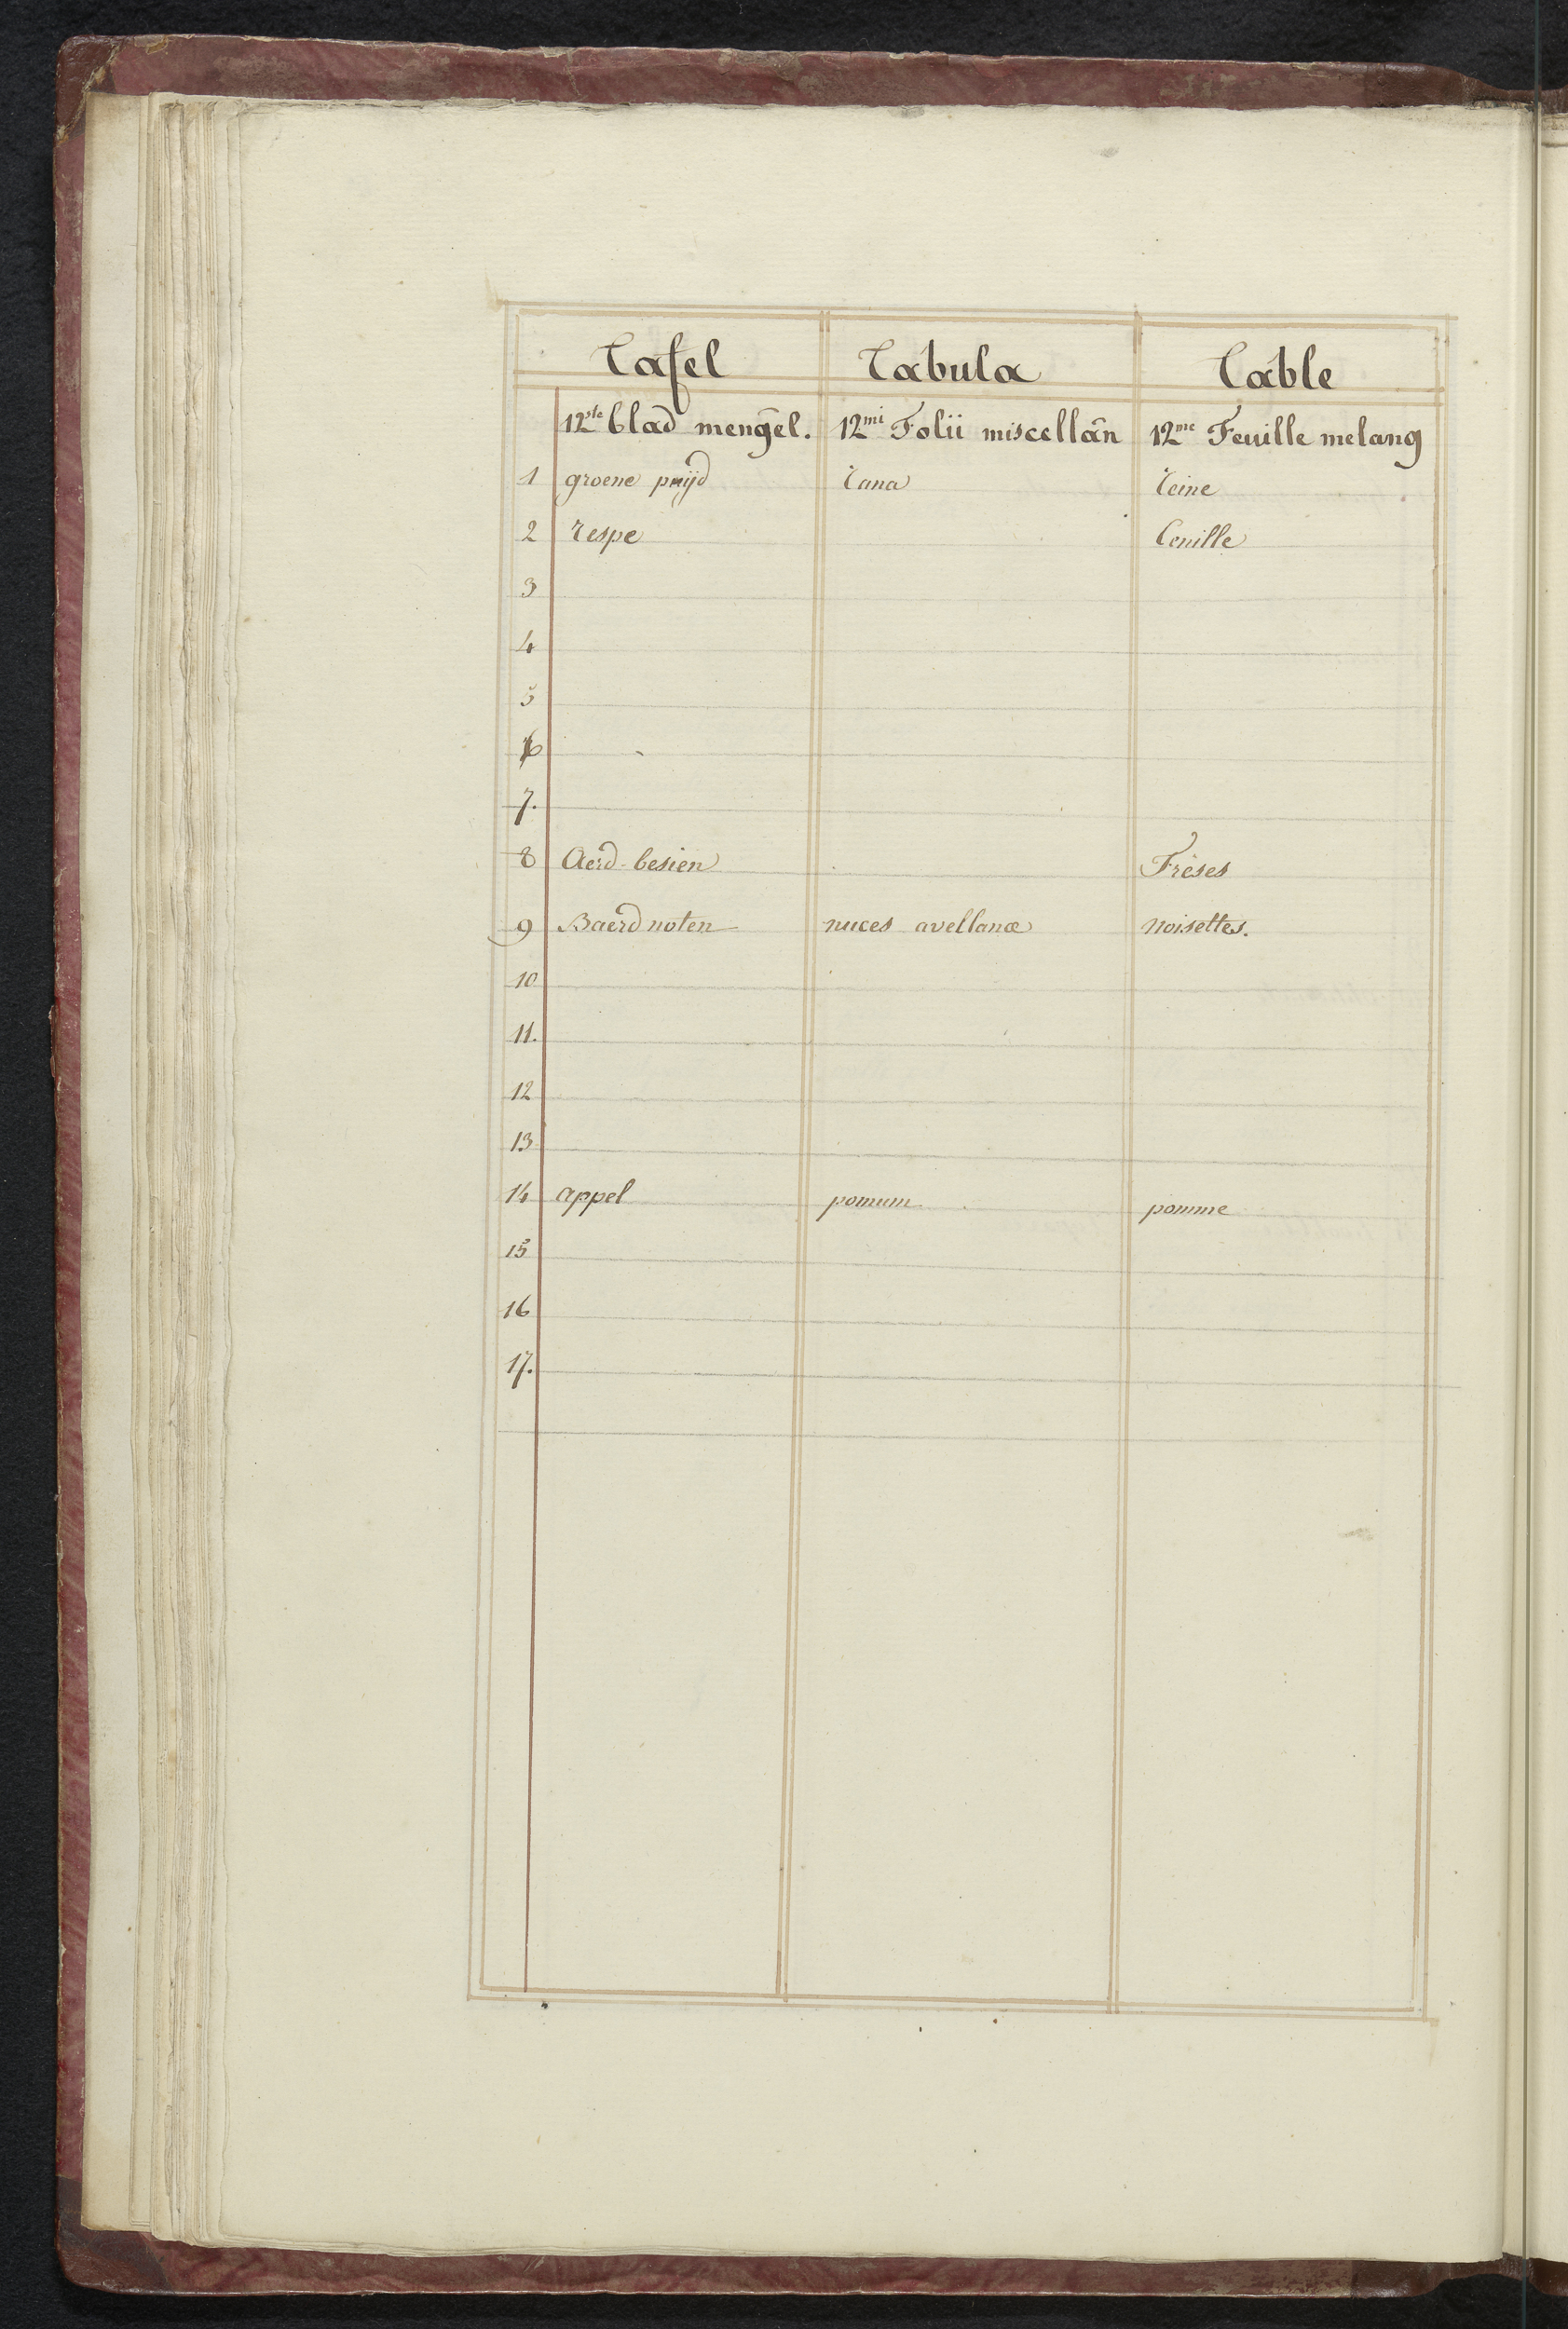 Tafel Tabula Table
12ste blad mengel. 12mi Folii miscellan 12me Feuille melang
1 groene puijd rana reine
2 respe Cenille
3
4
5
6
7.
8 Aerd-besien Frèses
9 Baerdnoten nuces avellanæ Noisettes.
10
11.
12
13
14 appel pomum pomme
15
16
17.